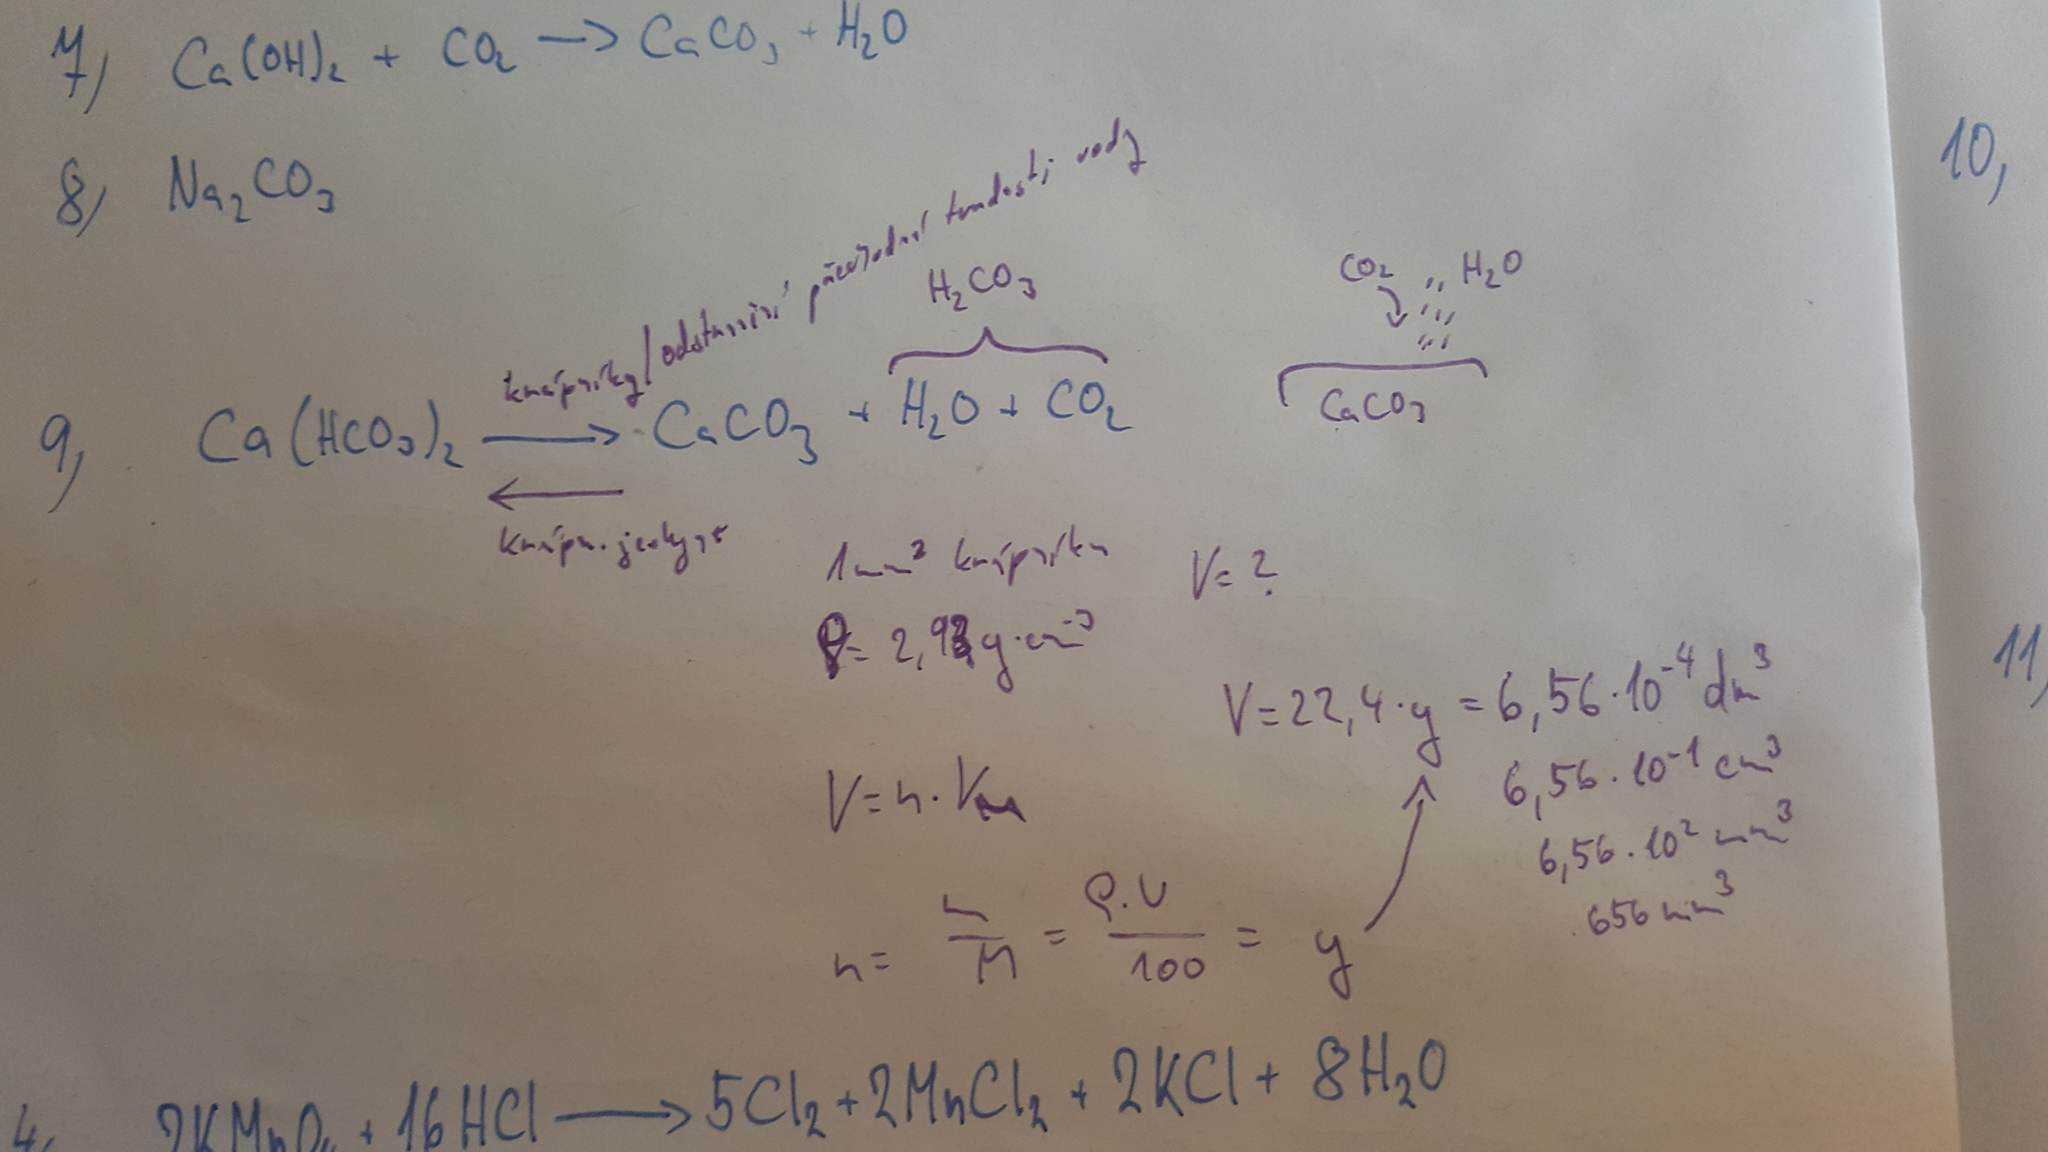 7, Ca(OH)₂ + CO₂ → CaCO₃ + H₂O
8, Na₂CO₃
10,
krápníky/odstranění přechodné tvrdosti vody
H₂CO₃
CO₂ H₂O
CaCO₃
9, Ca(HCO₃)₂ → CaCO₃ + H₂O + CO₂
←
krápn. jeskyně
1mm³ krápníku V=?
ρ= 2,93 g·cm⁻³
11,
V=22,4·y = 6,56·10⁻⁴ dm³
6,56·10⁻¹ cm³
6,56·10² mm³
656 mm³
V=n·Vm
n= m/M = ρ.V/100 = y
4, 2KMnO₄ + 16HCl → 5Cl₂ + 2MnCl₂ + 2KCl + 8H₂O